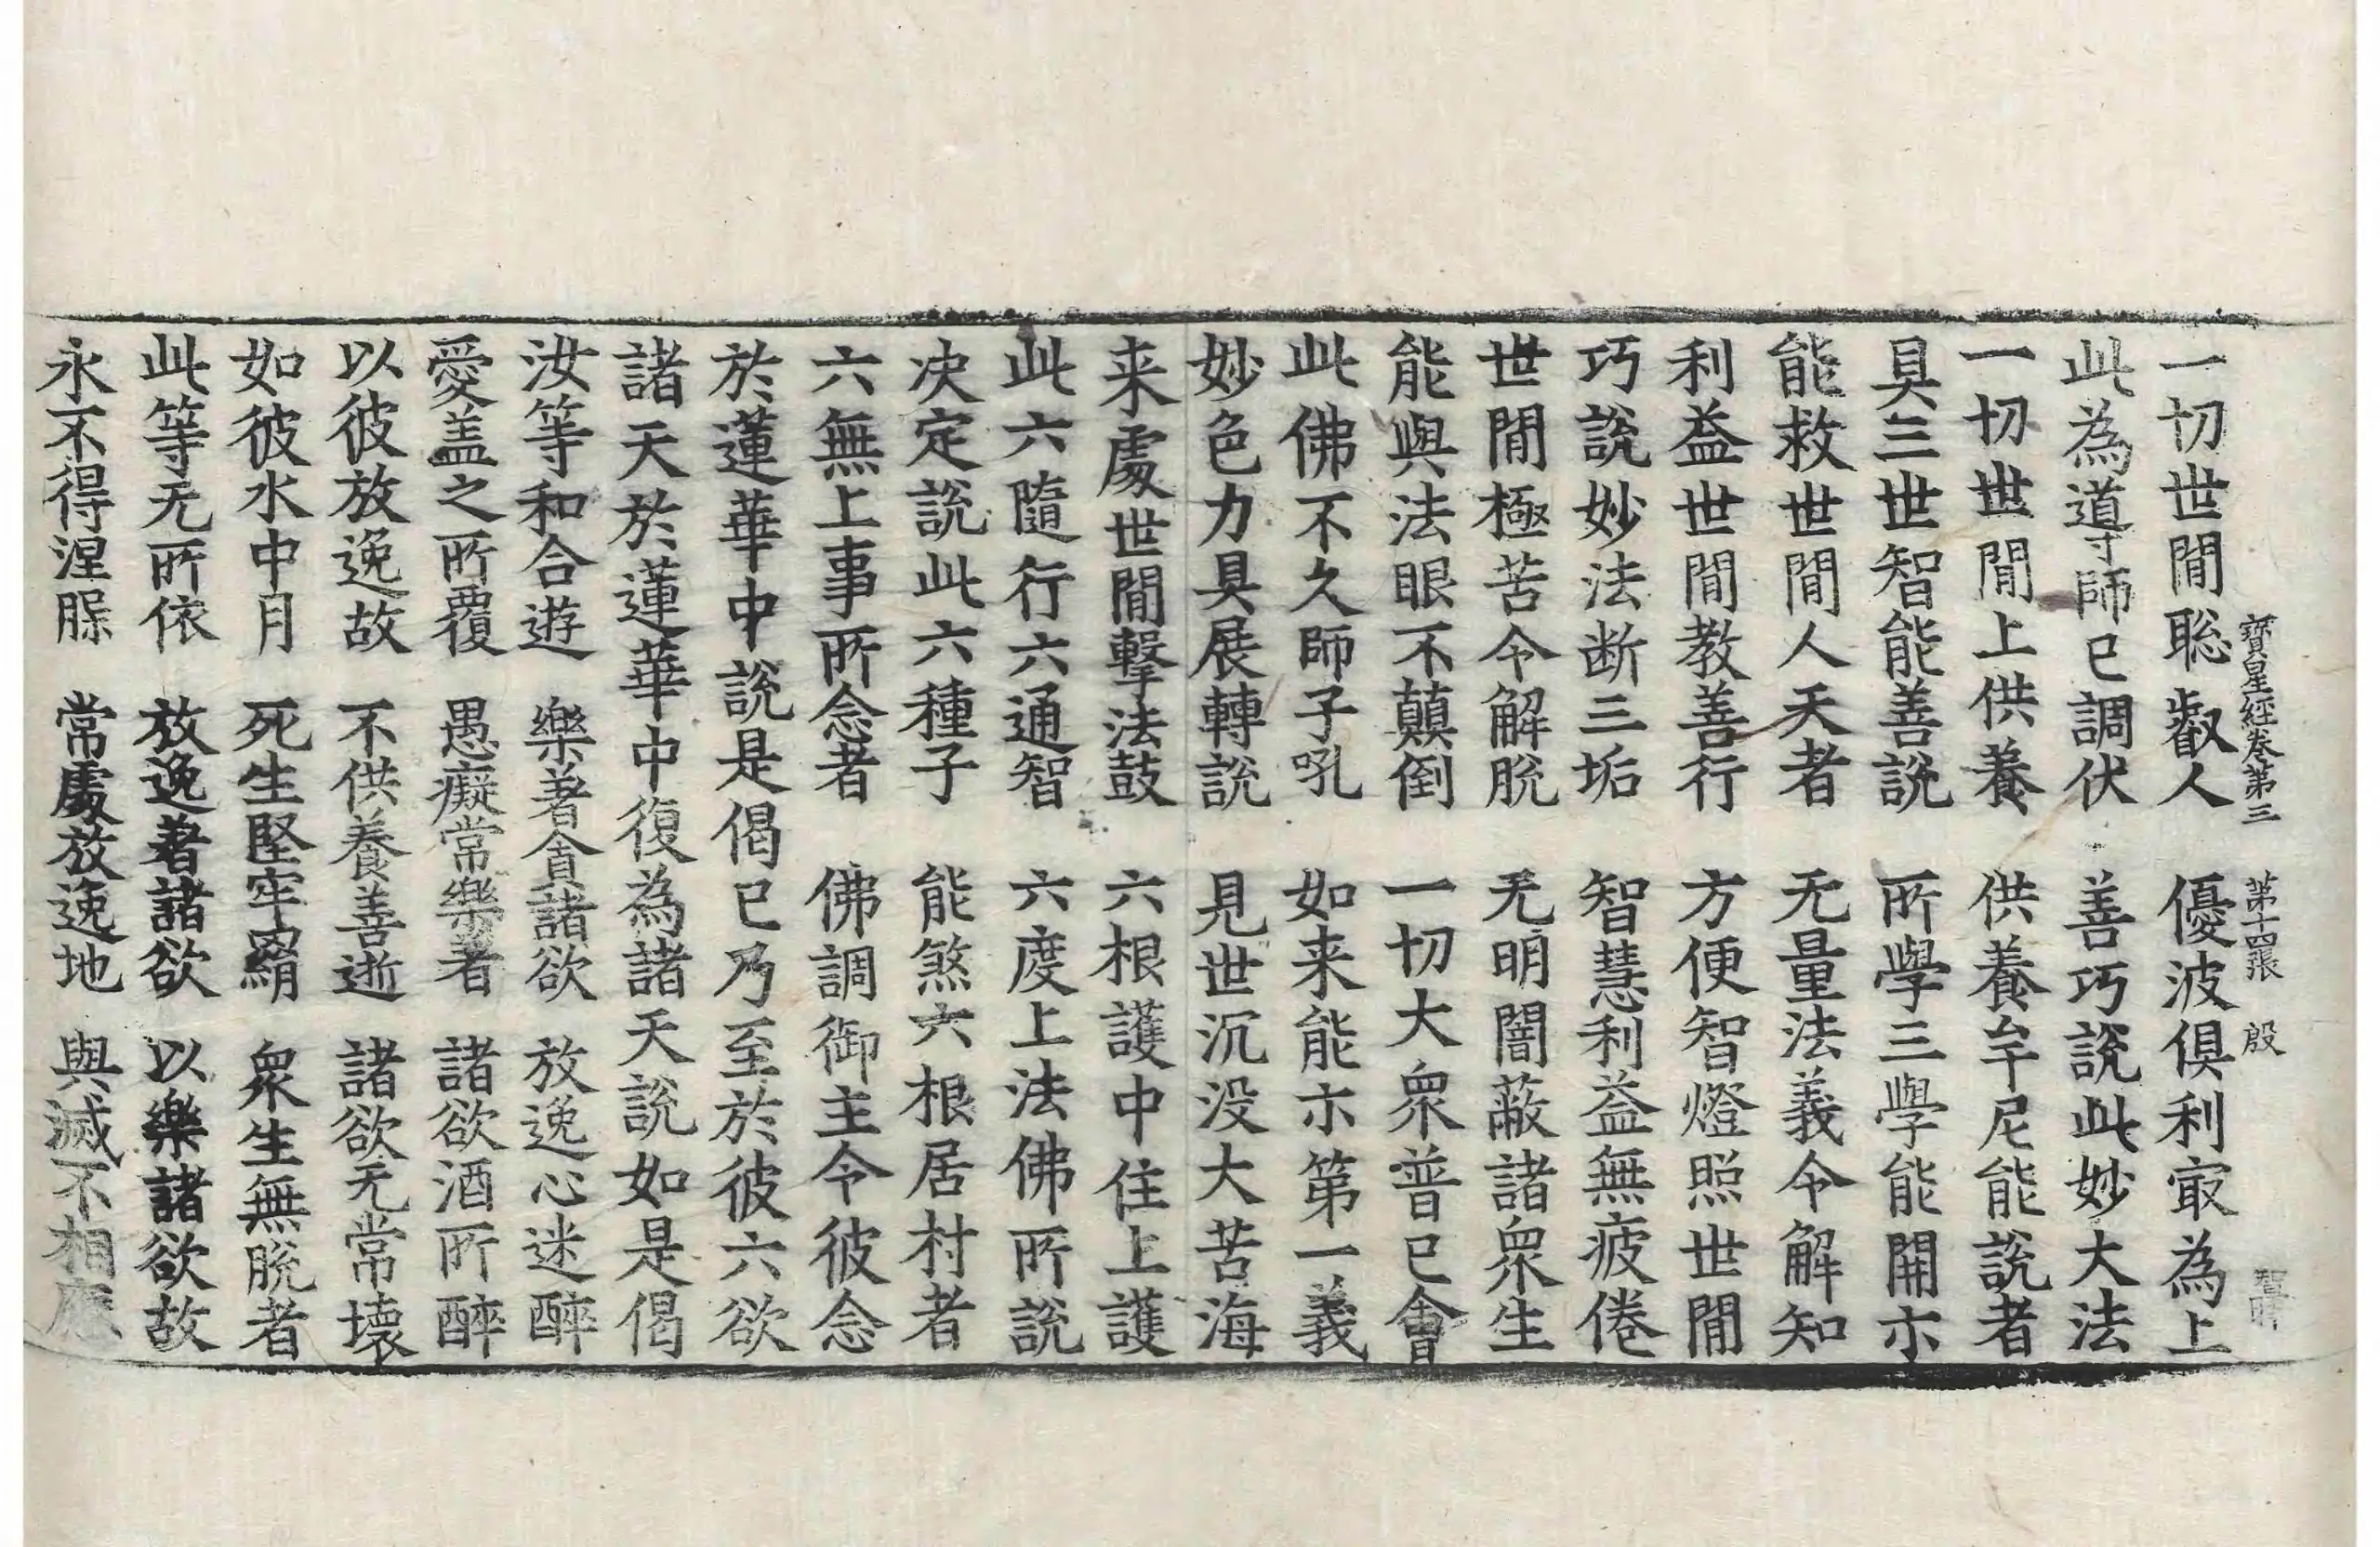 寶星經卷第三 第十四張 殷
一切世閒聡叡人 優波俱利㝡為上
此為導師已調伏 善巧說此妙大法
一切世閒上供養 供養牟尼能說者
具三世智能善說 所學三學能開尒
能救世閒人天者 无量法義令解知
利益世閒教善行 方便智燈照世閒
巧說妙法断三垢 智慧利益無疲倦
世閒極苦令解脫 无明闇蔽諸衆生
能與法眼不顛倒 一切大衆普已會
此佛不久師子吼 如来能尒第一義
妙色力具展轉說 見世沉没大苦海
来處世閒擊法鼓 六根護中住上護
此六隨行六通智 六度上法佛所說
决定說此六種子 能煞六根居村者
六無上事所念者 佛調御主令彼念
於蓮華中說是偈已乃至於彼六欲
諸天於蓮華中復為諸天說如是偈
汝等和合遊 樂著貪諸欲 放逸心迷醉
愛盖之所覆 愚癡常樂著 諸欲酒所醉
以彼放逸故 不供養善逝 諸欲无常壞
如彼水中月 死生堅牢羂 衆生無脫者
此等无所依 放逸著諸欲 以樂諸欲故
永不得涅脲 常處放逸地 與滅不相應